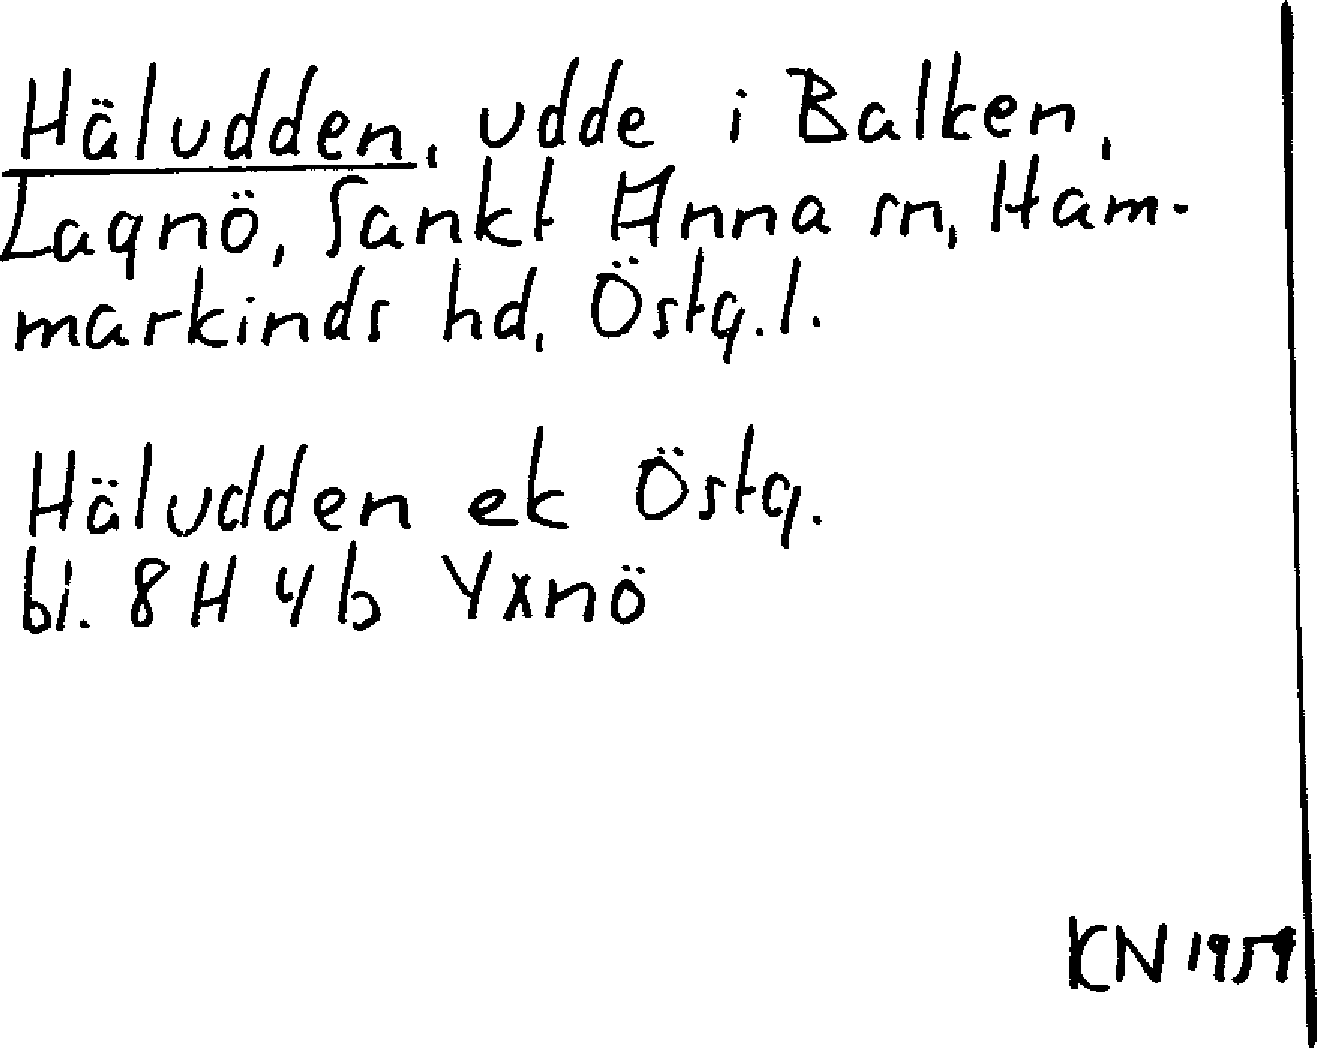 Häludden, udde i Balken,
Lagnö, Sankt Anna sn, Ham-
markinds hd, Östg.l.
Häludden ek Östg.
bl. 8H 4b Yxnö
KN 1959